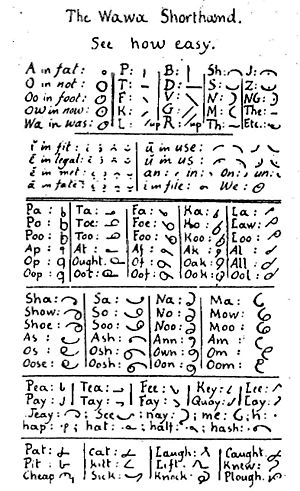 The Wawa Shorthand.
See how easy.
A in fat: P: B: Sh: J:
O in not: T: D: S: Z:
Oo in foot: F: V: N: NG:
Ow in now: K: G: M: The:
Wa in was: L: /up R: /up Th: Etc.:
i in fit: ū in use:
ē in legal: ŭ in us:
ĕ in met: an: in: On: un:
ā in fate: i in file: We:
Pa: Ta: Fa: Ka: La:
Po: Toe: Foe: Ko: Law:
Poo: Too: Foo: Koo: Loo:
Ap: At: Af: Ak: Al:
Op: Ought: Of: Oak: All:
Oop: Oot: Oof: Ook: Ool:
Sha: Sa: Na: Ma:
Show: So: No: Mow:
Shoe: Soo: Noo: Moo:
As: Ash: Ann: Am:
Os: Osh: Own: Om:
Oose: Oosh: Oon: Oom:
Pea: Tea: Fee: Key: Lee:
Pay: Tay: Fay: Quay: Lay:
Jeay: ; See nay: ; me: ; h:
hap: hat: half: hash:
Pat: Cat: Laugh: Caught
Pit: Kilt: Lift: Knew:
Cheap Sick: Knock Plough.